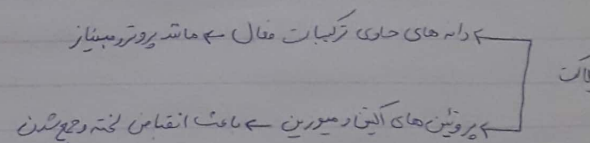 دانه های حاوی ترکیبات فعال ← مانند پروترومبیناز
پروتئین های اکتین و میوزین ← باعث انقباض لخته و جمع شدن